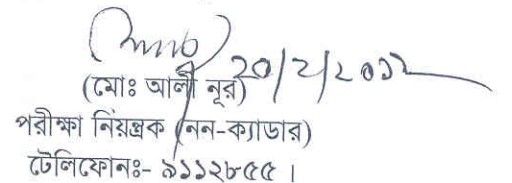 ২০/২/২০১২
(মোঃ আলী নূর)
পরীক্ষা নিয়ন্ত্রক (নন-ক্যাডার)
টেলিফোনঃ- ৯১১২৮৫৫ ।